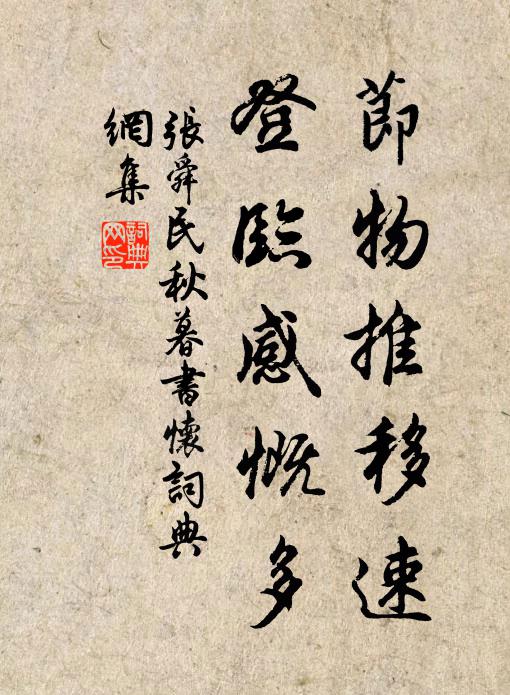 節物推移速
登臨感慨多
張舜民秋暮書懷詞典
網集
詞典
网印